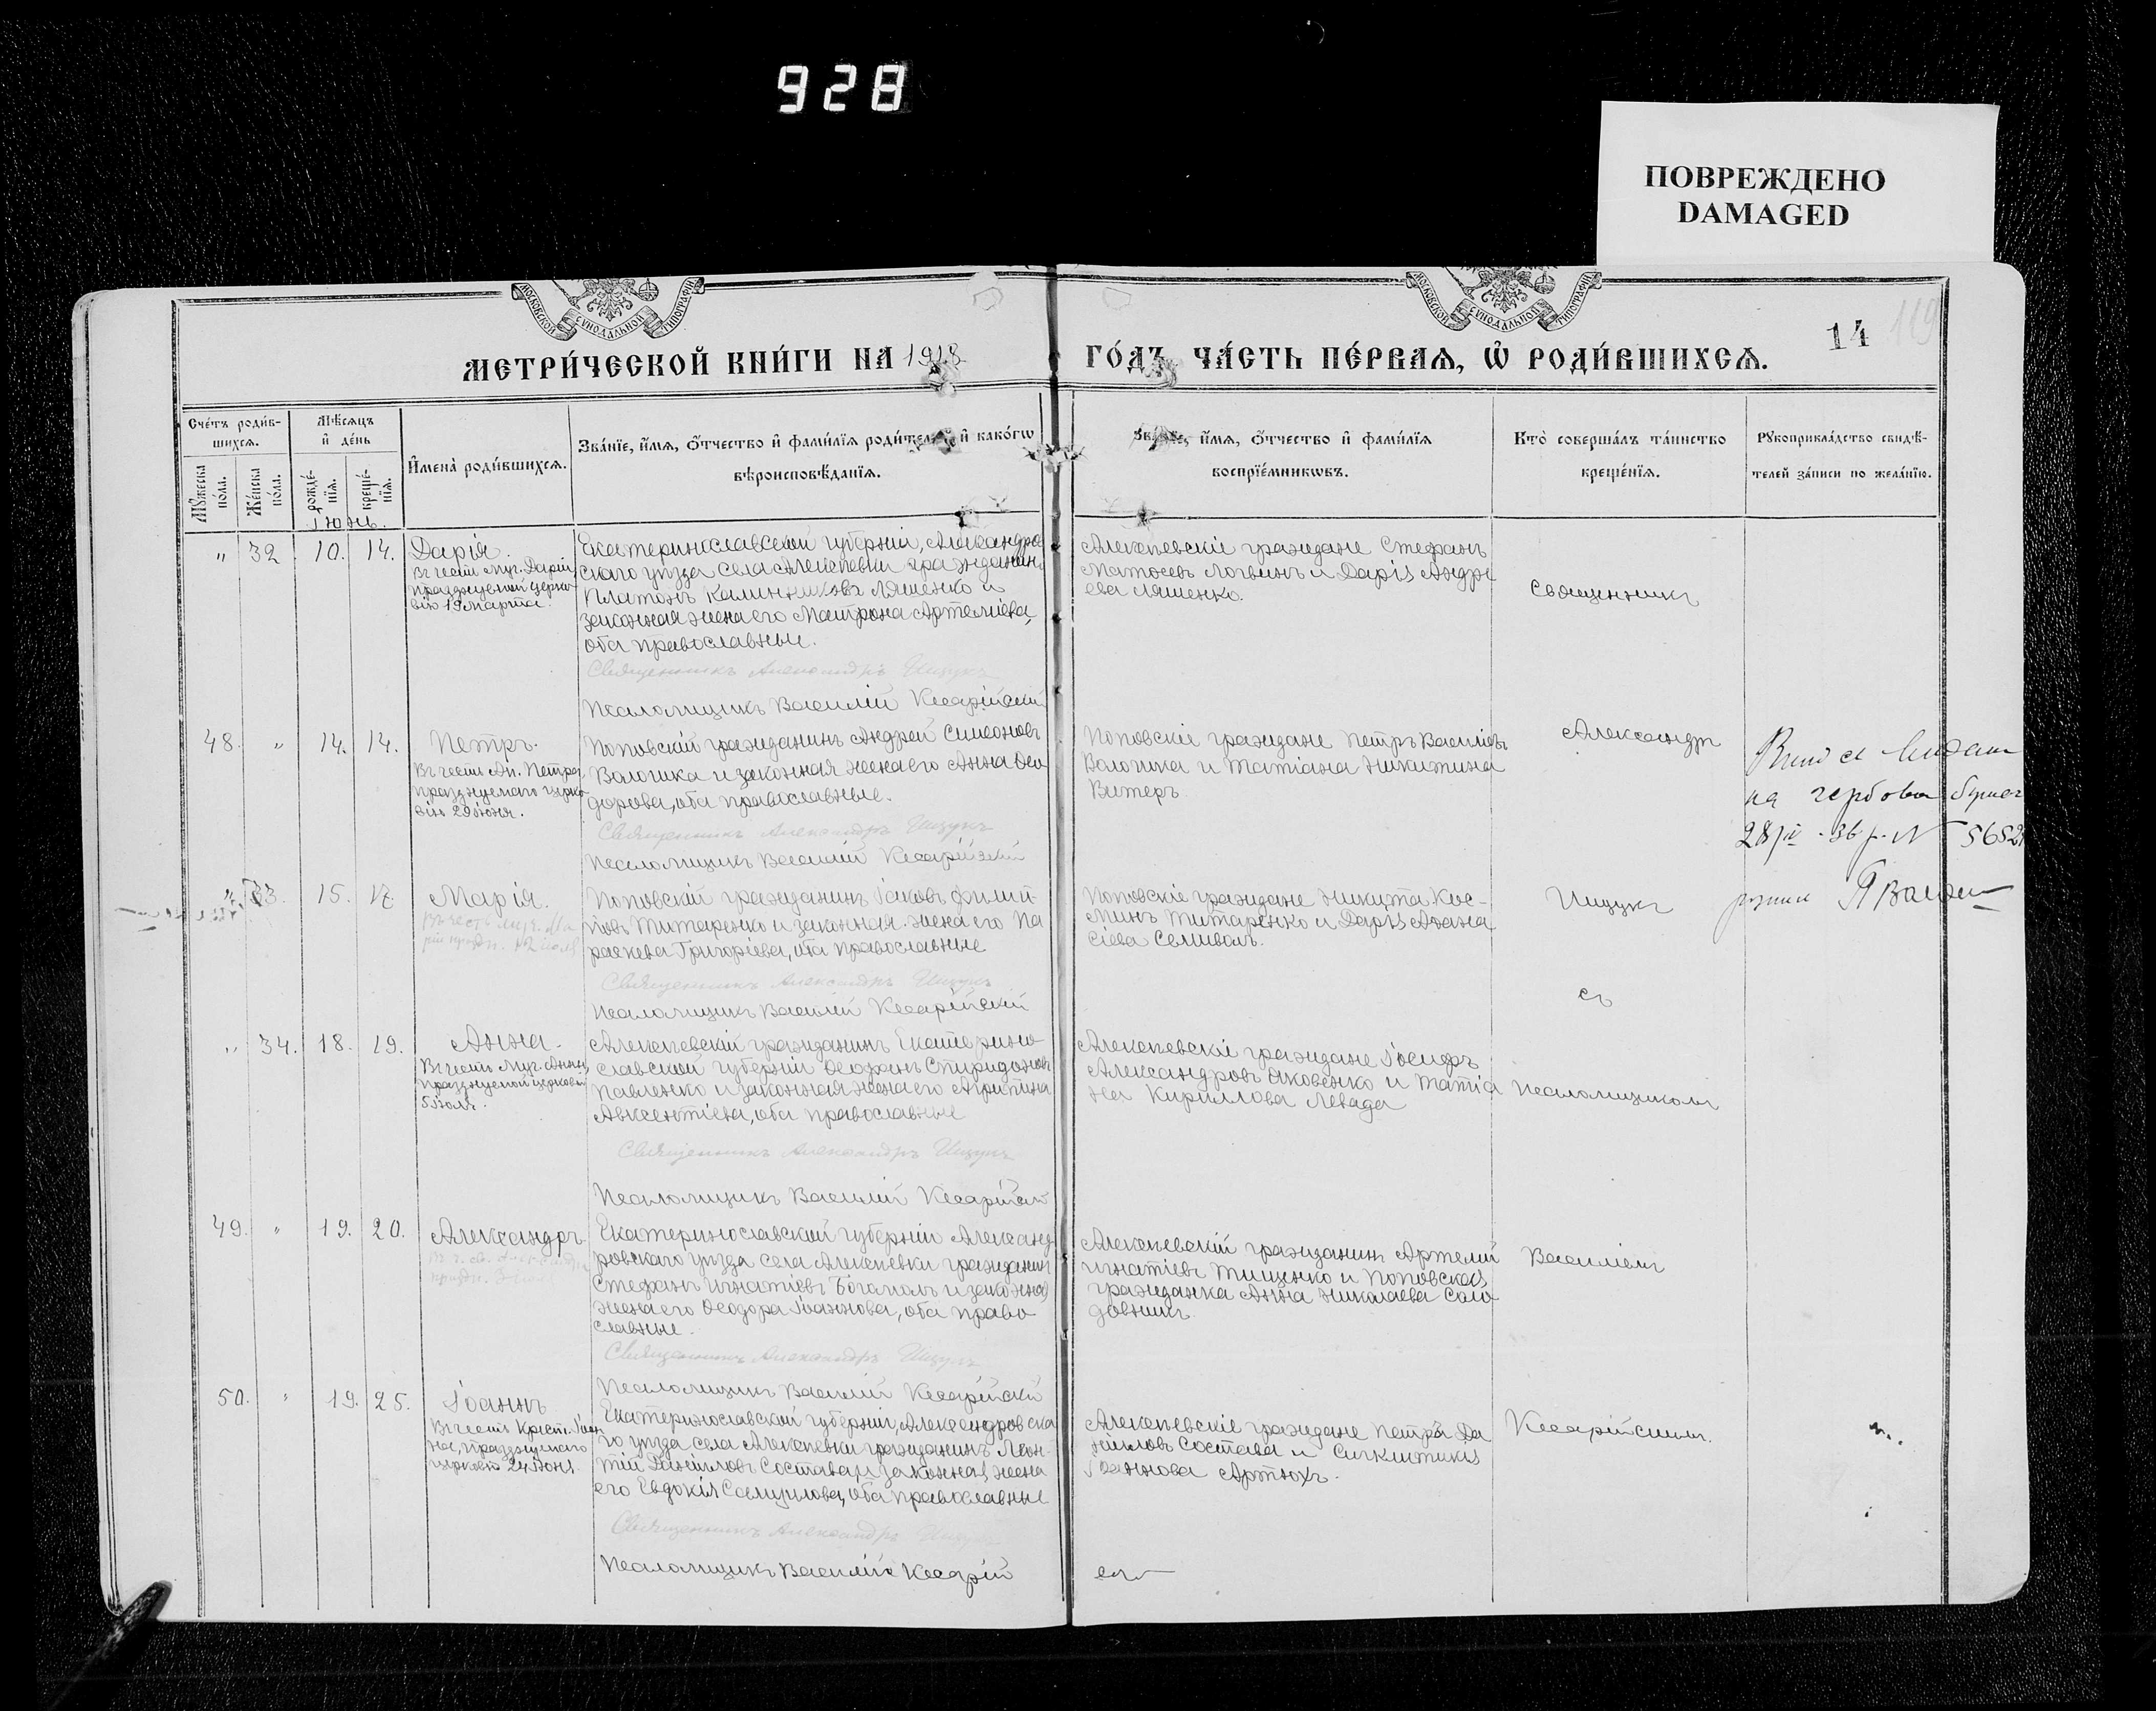 928
ПОВРЕЖДЕНО
DAMAGED
МОСКОВСКОЙ СУНОДАЛЬНОЙ ТИПОГРАФІИ
МОСКОВСКОЙ СУНОДАЛЬНОЙ ТИПОГРАФІИ
14 119
МЕТРИ́ЧЕСКОЙ КНИ́ГИ НА 1918
ГО́ДЪ ЧА́СТЬ ПЕ́РВАЯ, Ѡ҆ РОДИ́ВШИХСЯ.
Сче́тъ роди́в-
шихся.
Мꙋ́жеска по́ла.
Же́нска по́ла.
Мѣ́сяцъ
и҆ де́нь
рожде́-
нїя.
креще́-
нїя.
И҆мена̀ роди́вшихся.
Зва́нїе, и҆́мя, ѻ҆́тчество и҆ фами́лїя роди́тел и҆ како́гѡ
вѣроисповѣ́данїя.
и҆́мя, ѻ҆́тчество и҆ фами́лїя
воспрїе́мникѡвъ.
Кто̀ соверша́лъ та́инство
креще́нїя.
Рꙋкоприкла́дство свидѣ́-
телей за́писи по жела́нїю.
Іюнь.
" 32 10. 14. Дарія.
Въ честь Муч. Даріи,
празднуемой церко-
вію 19 Марта.
Екатеринославской губерніи, Александров
скаго уѣзда села Алексѣевки гражданинъ
Платонъ Калинниковъ Ляшенко и
законная жена его Матрона Артеміева,
оба православные.
Священникъ Александръ Ищукъ
Псаломщикъ Василій Кесарійскій
Алексѣевскіе граждане Стефанъ
Матѳеевъ Логвинъ и Дарія Андре
ева Ляшенко.
Священникъ
48. " 14. 14. Петръ.
Въ честь Ап. Петра,
празднуемаго церко
вію 29 Іюня.
Поповскій гражданинъ Андрей Симеоновъ
Волошка и законная жена его Анна Ѳео
дорова, оба православные.
Священникъ Александръ Ищукъ
Псаломщикъ Василій Кесарійскій
Поповскіе граждане Петръ Васильевъ
Волошка и Татіана Никитина
Витеръ.
Александръ
на
28
5652
" 33. 15. 17. Марія.
Поповскій гражданинъ Іаковъ Филип-
повъ Титаренко и законная жена его Па
раскева Григоріева, оба православные
Священникъ Александръ Ищукъ
Псаломщикъ Василій Кесарійскій
Поповскіе граждане Никита Кос-
минъ Титаренко и Дарія Аѳана
сіева Семиволъ.
Ищукъ
съ
" 34. 18. 19. Анна.
Въ честь Муч. Анны,
празднуемой церковію
5 Іюля.
Алексѣевскій гражданинъ Екатерино-
славской губерніи Ѳеофанъ Спиридоновъ
Павленко и законная жена его Агрипина
Авксентіева, оба православные
Священникъ Александръ Ищукъ
Псаломщикъ Василій Кесарійскій
Алексѣевскіе граждане Іосифъ
Александровъ Яковенко и Татіа
на Кириллова Левада
псаломщикомъ
49. " 19. 20. Александръ
Екатеринославской губерніи Александ
ровскаго уѣзда села Алексѣевки гражданинъ
Стефанъ Игнатіевъ Богомолъ и законная
жена его Ѳеодора Іоаннова, оба право-
славные.
Священникъ Александръ Ищукъ
Псаломщикъ Василій Кесарійскій
Алексѣевскій гражданинъ Артемій
Игнатіевъ Тищенко и Поповская
гражданка Анна Николаева Соло
довникъ.
Василіемъ
50. " 19. 25. Іоаннъ
Въ честь Крест. Іоан
на, празднуемаго
церковію 24 Іюня.
Екатеринославской губерніи, Александровска
го уѣзда села Алексѣевки гражданинъ Леон-
тій Даніиловъ Состава, и законная жена
его Евдокія Самуилова, оба православные
Священникъ Александръ Ищукъ
Псаломщикъ Василій Кесарій
Алексѣевскіе граждане Петръ Да
ніиловъ Состава и Синклитикія
Іоаннова Артюхъ.
Кесарійскимъ.